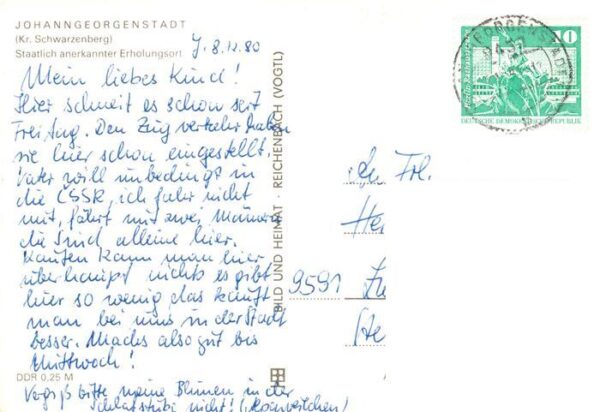 JOHANNGEORGENSTADT
(Kr. Schwarzenberg)
Staatlich anerkannter Erholungsort
J. 8.12.80
Mein liebes Kind!
Hier schneit es schon seit
Freitag. Den Zugverkehr haben
sie hier schon eingestellt.
Vater will unbedingt in
die ČSSR, ich fahr nicht
mit, fährt mit zwei Männern
die sind alleine hier.
Kaufen kann man hier
überhaupt nichts es gibt
hier so wenig das kauft
man bei uns in der Stadt
besser. Machs also gut bis
Mittwoch!
DDR 0,25 M
Vergiß bitte meine Blumen in der
Schlafstube nicht!
BILD UND HEIMAT · REICHENBACH (VOGTL)
10
DEUTSCHE DEMOKRATISCHE REPUBLIK
An Frl.
9591